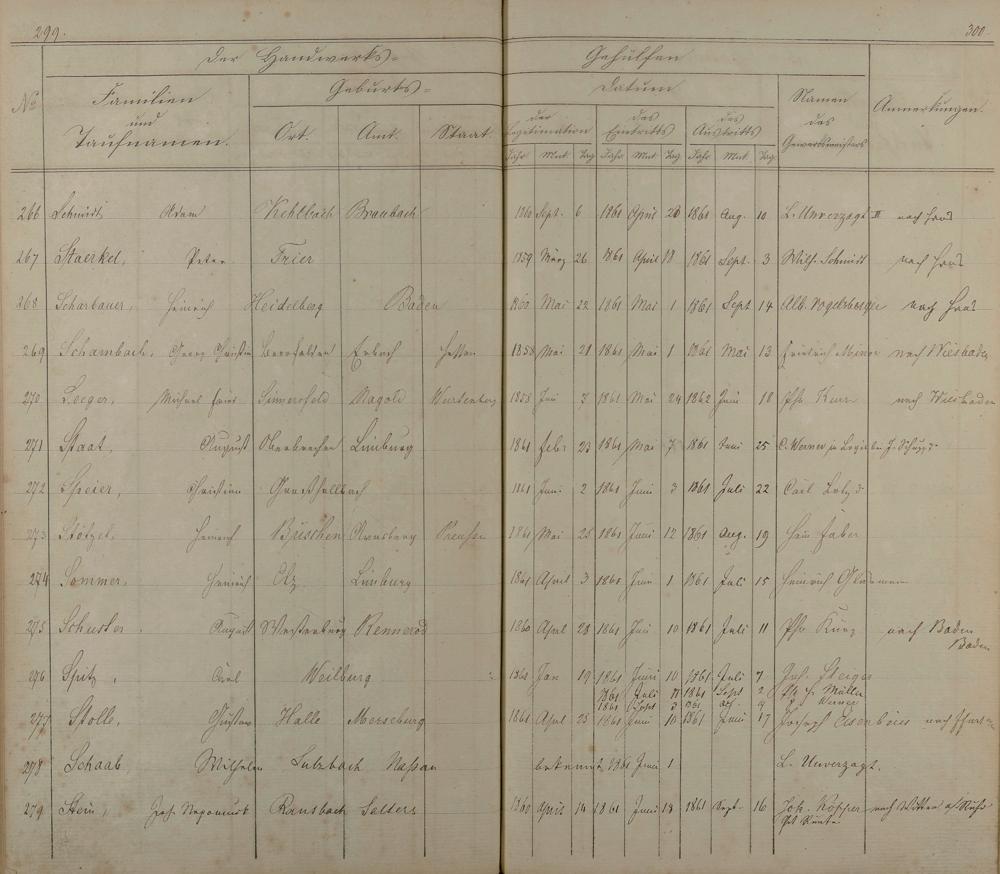 299.
300.
Der Handwerks=
Gehülfen
No
Familien
und
Taufnamen.
Geburts=
Ort.
Amt.
Staat
Datum
der
Legitimation
des
Eintritts
des
Austritts
Namen
des
Gewerbsmeisters
Anmerkungen.
Jahr Mnt. Tag Jahr Mnt Tag Jahr Mnt. Tag
266 Schmidt Adam Kehlbach Braubach 1860 Sept. 6 1861 April 28 1861 Aug. 10 L. Unverzagt II nach Haus
267 Staerkel, Peter Trier 1859 März 26 1861 April 18 1861 Sept. 3 Wilh. Schmidt nach Haus
268 Scharbauer, Heinrich Heidelberg Baden 1860 Mai 22 1861 Mai 1 1861 Sept 14 Alb. Vogelsberger nach Haus
269 Schambach, Georg Christian Beerfelden Erbach Hessen 1858 Mai 21 1861 Mai 1 1861 Mai 13 Friedrich nach Wiesbaden
270 Seeger, Michael Simmersfeld Nagold Wurtenberg 1858 Juni 7 1861 Mai 24 1862 Juni 18 Phil. Kurz nach Wiesbaden
271 Staat, August Oberbrechen Limburg 1861 Febr. 23 1861 Mai 7 1861 Juni 25 C. Werner in Logis bei J. Schupp
272 Speier, Christian 1861 Juni 2 1861 Juni 3 1861 Juli 22 Carl
273 Stötzel, Heinrich Büschken Arnsberg Preußen 1861 Mai 25 1861 Juni 12 1861 Aug. 19 Hein Faber
274 Sommer, Heinrich Limburg 1861 April 3 1861 Juni 1 1861 Juli 15 Heinrich Glasmann
275 Schuster, August Westerburg Rennerod 1860 April 28 1861 Juni 10 1861 Juli 11 Phil. Kurz nach Baden
Baden
276 Spitz, Carl Weilburg 1861 Jan 19 1861 Juni 10 1861 Juli 7 Joh. Steiger
1861 Juli 11 1861 Sept 2 Ph. H. Müller
1861 Sept 3 1861 Oct. 9
277 Stolle, Gustav Halle Merseburg 1861 April 25 1861 Juni 10 1861 Juni 17 Joseph Eisenbeis nach
278 Schaab, Wilhelm Sulzbach Naßau bekannt 1861 Juni 1 L. Unverzagt.
279 Stein, Joh. Nepomuck Ransbach Selters 1860 April 14 1861 Juni 18 1861 Sept. 16 Joh. Köpper nach Witten a/Ruhr